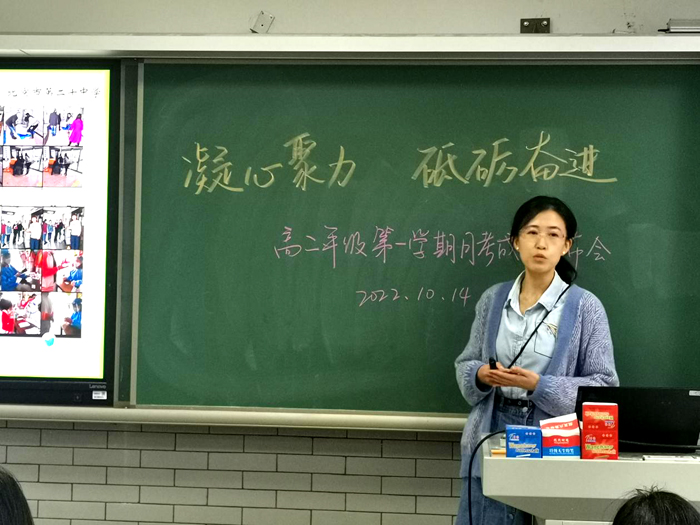 凝心聚力 砥砺奋进
高二年级第一学期月考成 布会
2022.10.14
Lenovo